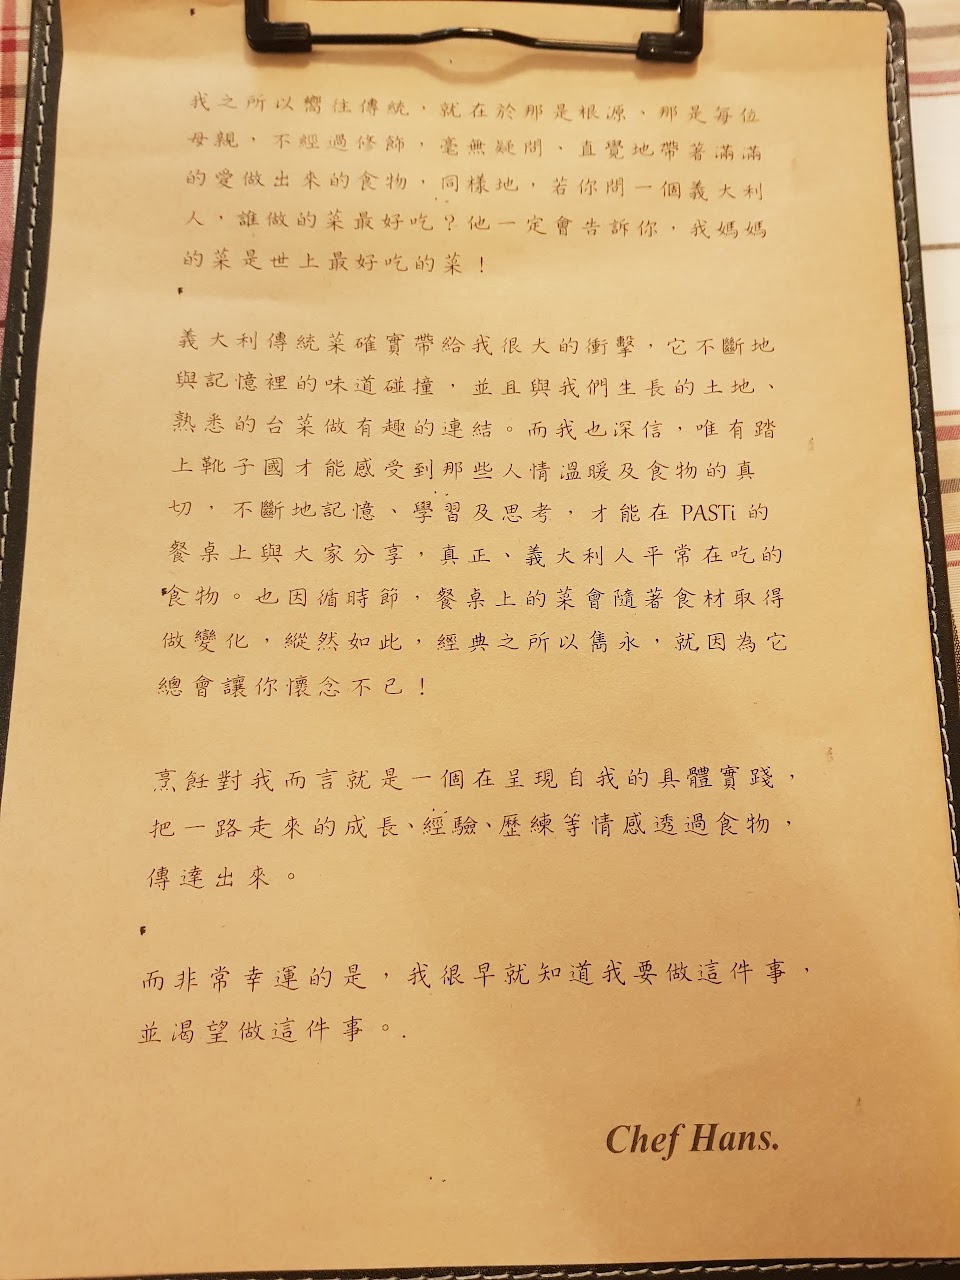 我之所以嚮往傳統，就在於那是根源、那是每位
母親，不經過修飾，毫無疑問、直覺地帶著滿滿
的愛做出來的食物，同樣地，若你問一個義大利
人，誰做的菜最好吃？他一定會告訴你，我媽媽
的菜是世上最好吃的菜！
義大利傳統菜確實帶給我很大的衝擊，它不斷地
與記憶裡的味道碰撞，並且與我們生長的土地、
熟悉的台菜做有趣的連結。而我也深信，唯有踏
上靴子國才能感受到那些人情溫暖及食物的真
切，不斷地記憶、學習及思考，才能在 PASTi 的
餐桌上與大家分享，真正、義大利人平常在吃的
食物。也因循時節，餐桌上的菜會隨著食材取得
做變化，縱然如此，經典之所以雋永，就因為它
總會讓你懷念不已！
烹飪對我而言就是一個在呈現自我的具體實踐，
把一路走來的成長、經驗、歷練等情感透過食物，
傳達出來。
而非常幸運的是，我很早就知道我要做這件事，
並渴望做這件事。.
Chef Hans.